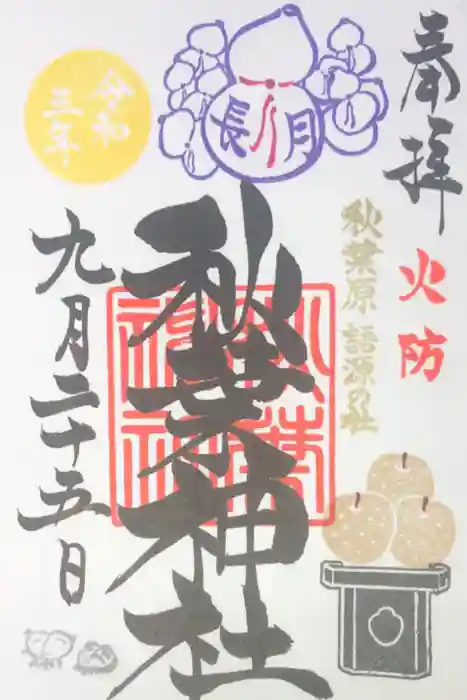 奉拝
火防
秋葉原 語源の社
長月
秋葉神社
秋葉
神社
令和
三年
九月二十五日